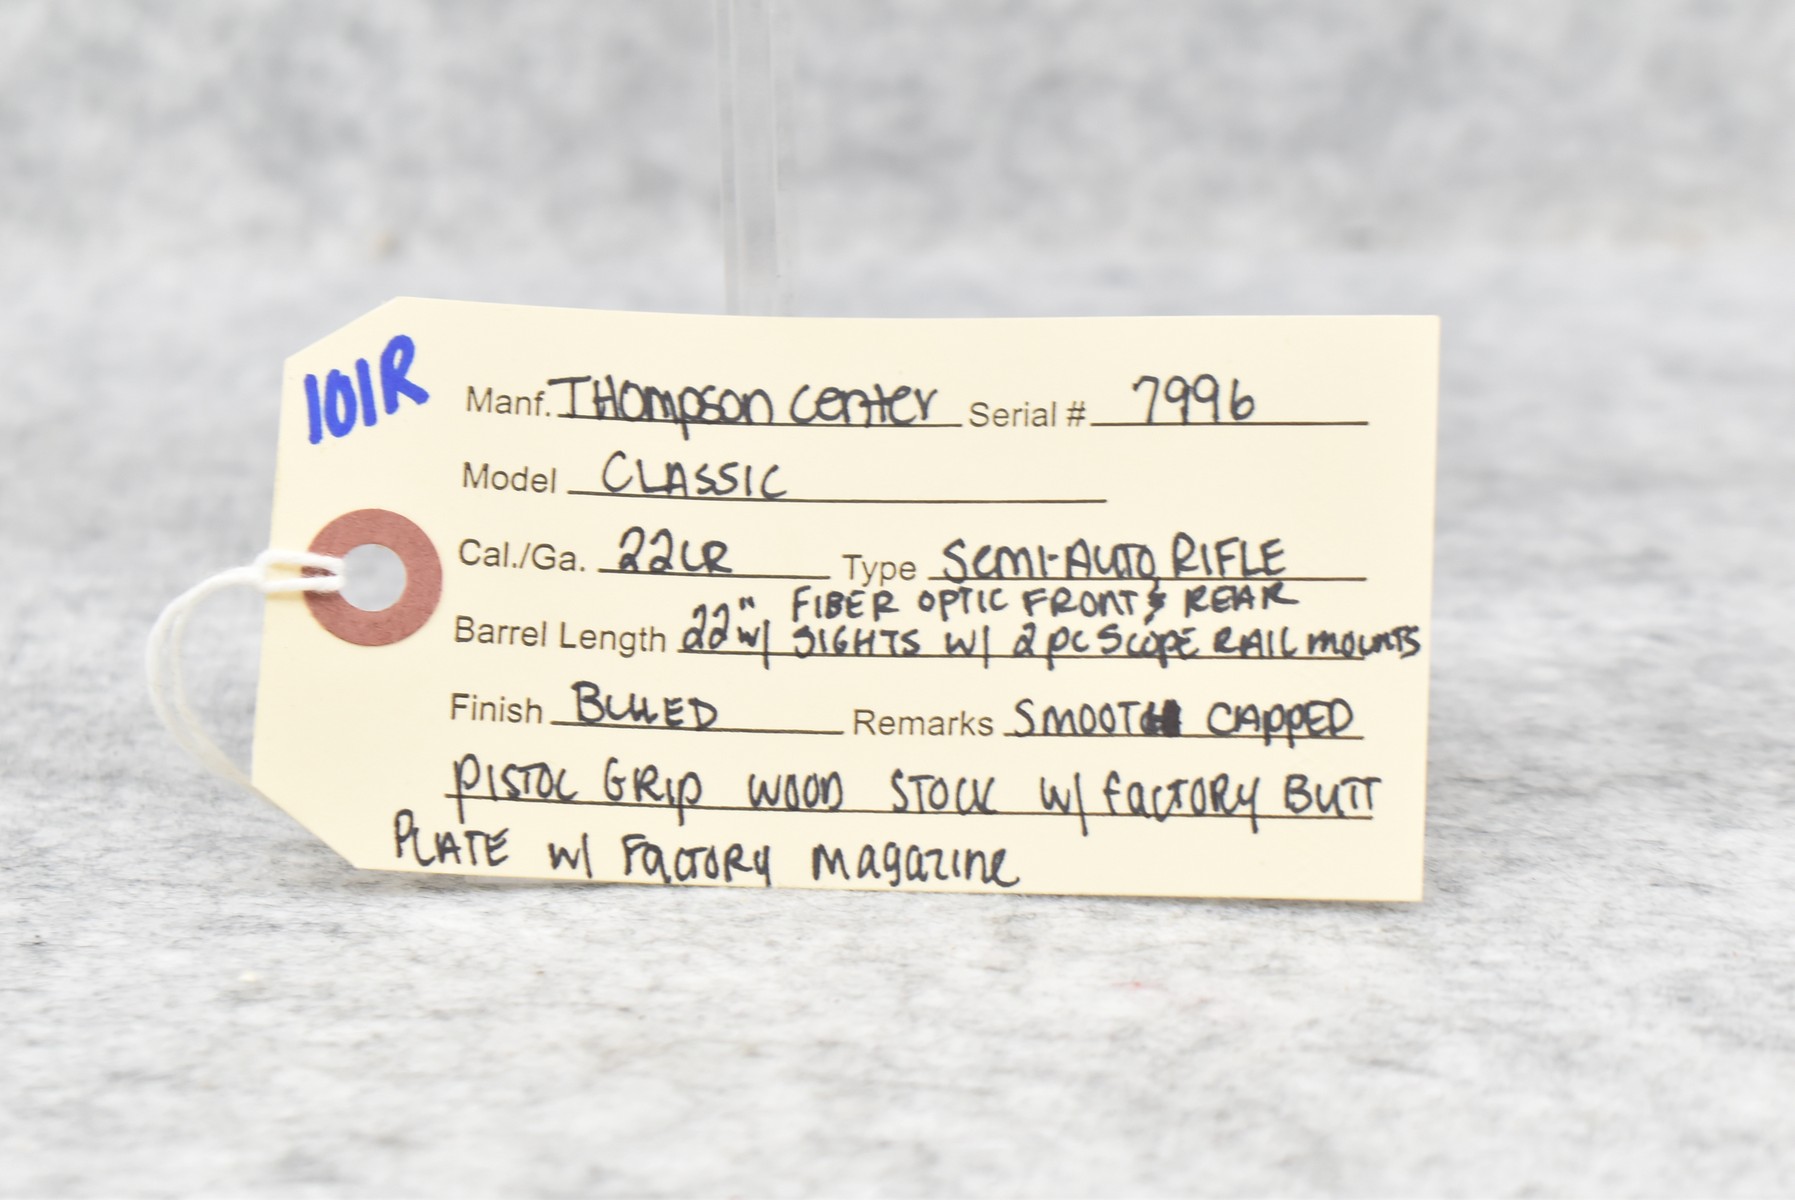 101R
Manf. THompson Center Serial # 7996
Model CLASSIC
Cal./Ga. 22LR Type Semi-AUTO RIFLE
FIBER OPTIC FRONT & REAR
Barrel Length 22" w/ SIGHTS W/ 2 PC SCOPE RAIL mounts
Finish BLUED Remarks SMOOTH CAPPED
PISTOL GRIP WOOD STOCK W/ FACTORY BUTT
PLATE W/ FACTORY magazine